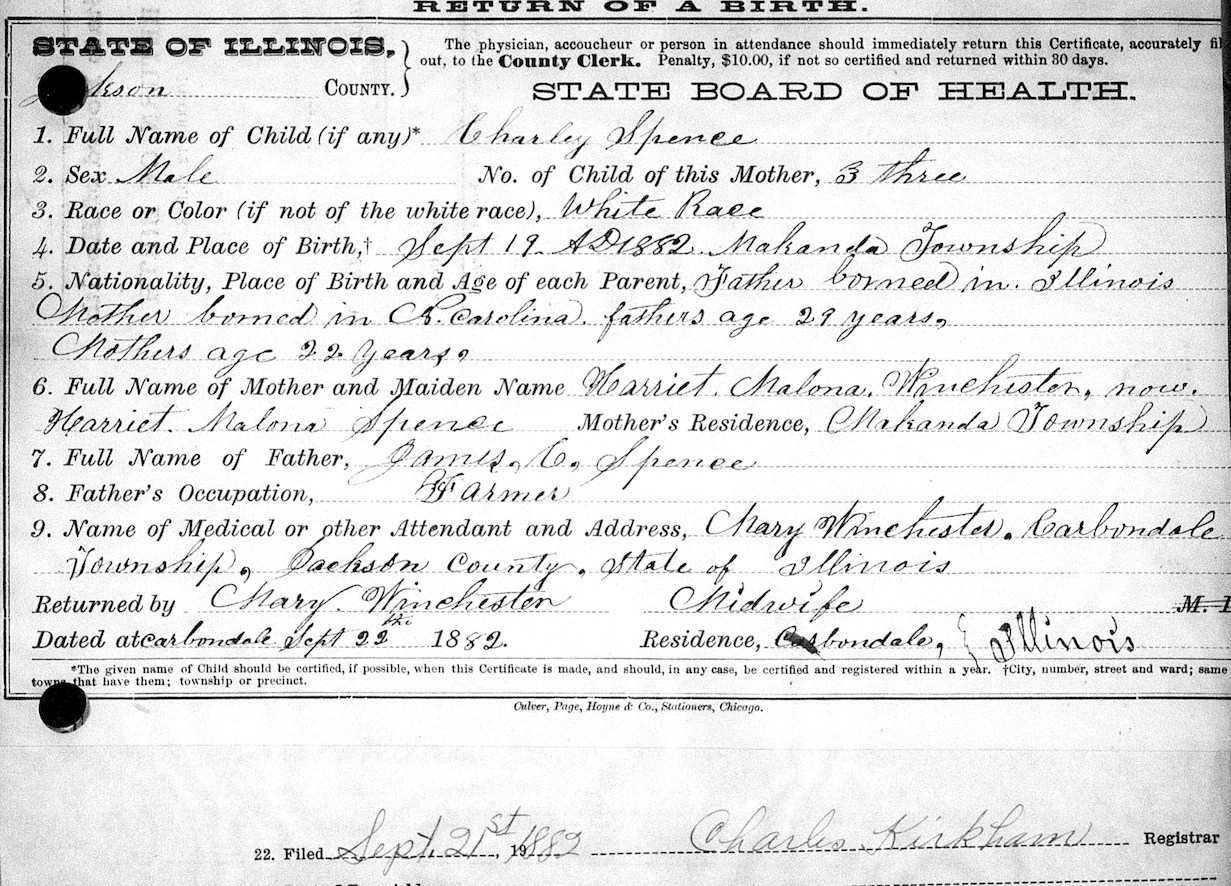 RETURN OF A BIRTH.
STATE OF ILLINOIS, The physician, accoucheur or person in attendance should immediately return this Certificate, accurately fil
out, to the County Clerk. Penalty, $10.00, if not so certified and returned within 30 days.
kson COUNTY. STATE BOARD OF HEALTH.
1. Full Name of Child (if any)* Charley Spence
2. Sex Male No. of Child of this Mother, 3 three
3. Race or Color (if not of the white race), White Race
4. Date and Place of Birth,† Sept 19. AD 1882. Makanda Township
5. Nationality, Place of Birth and Age of each Parent, Father borned in. Illinois
Mother borned in Carolina. fathers age 29 years,
Mothers age 22 years,
6. Full Name of Mother and Maiden Name Harriet. Malona. Winchester, now.
Harriet. Malona Spence Mother's Residence, Makanda Township
7. Full Name of Father, James, C, Spence
8. Father's Occupation, Farmer
9. Name of Medical or other Attendant and Address, Mary Winchester. Carbondale
Township, Jackson County, State of Illinois
Returned by Mary. Winchester Midwife M. D
Dated at carbondale Sept 22 th 1882. Residence, Carbondale, Illinois
*The given name of Child should be certified, if possible, when this Certificate is made, and should, in any case, be certified and registered within a year. †City, number, street and ward; same
towns that have them; township or precinct.
Culver, Page, Hoyne & Co., Stationers, Chicago.
22. Filed Sept. 21st, 1882 Charles Kirkham Registrar